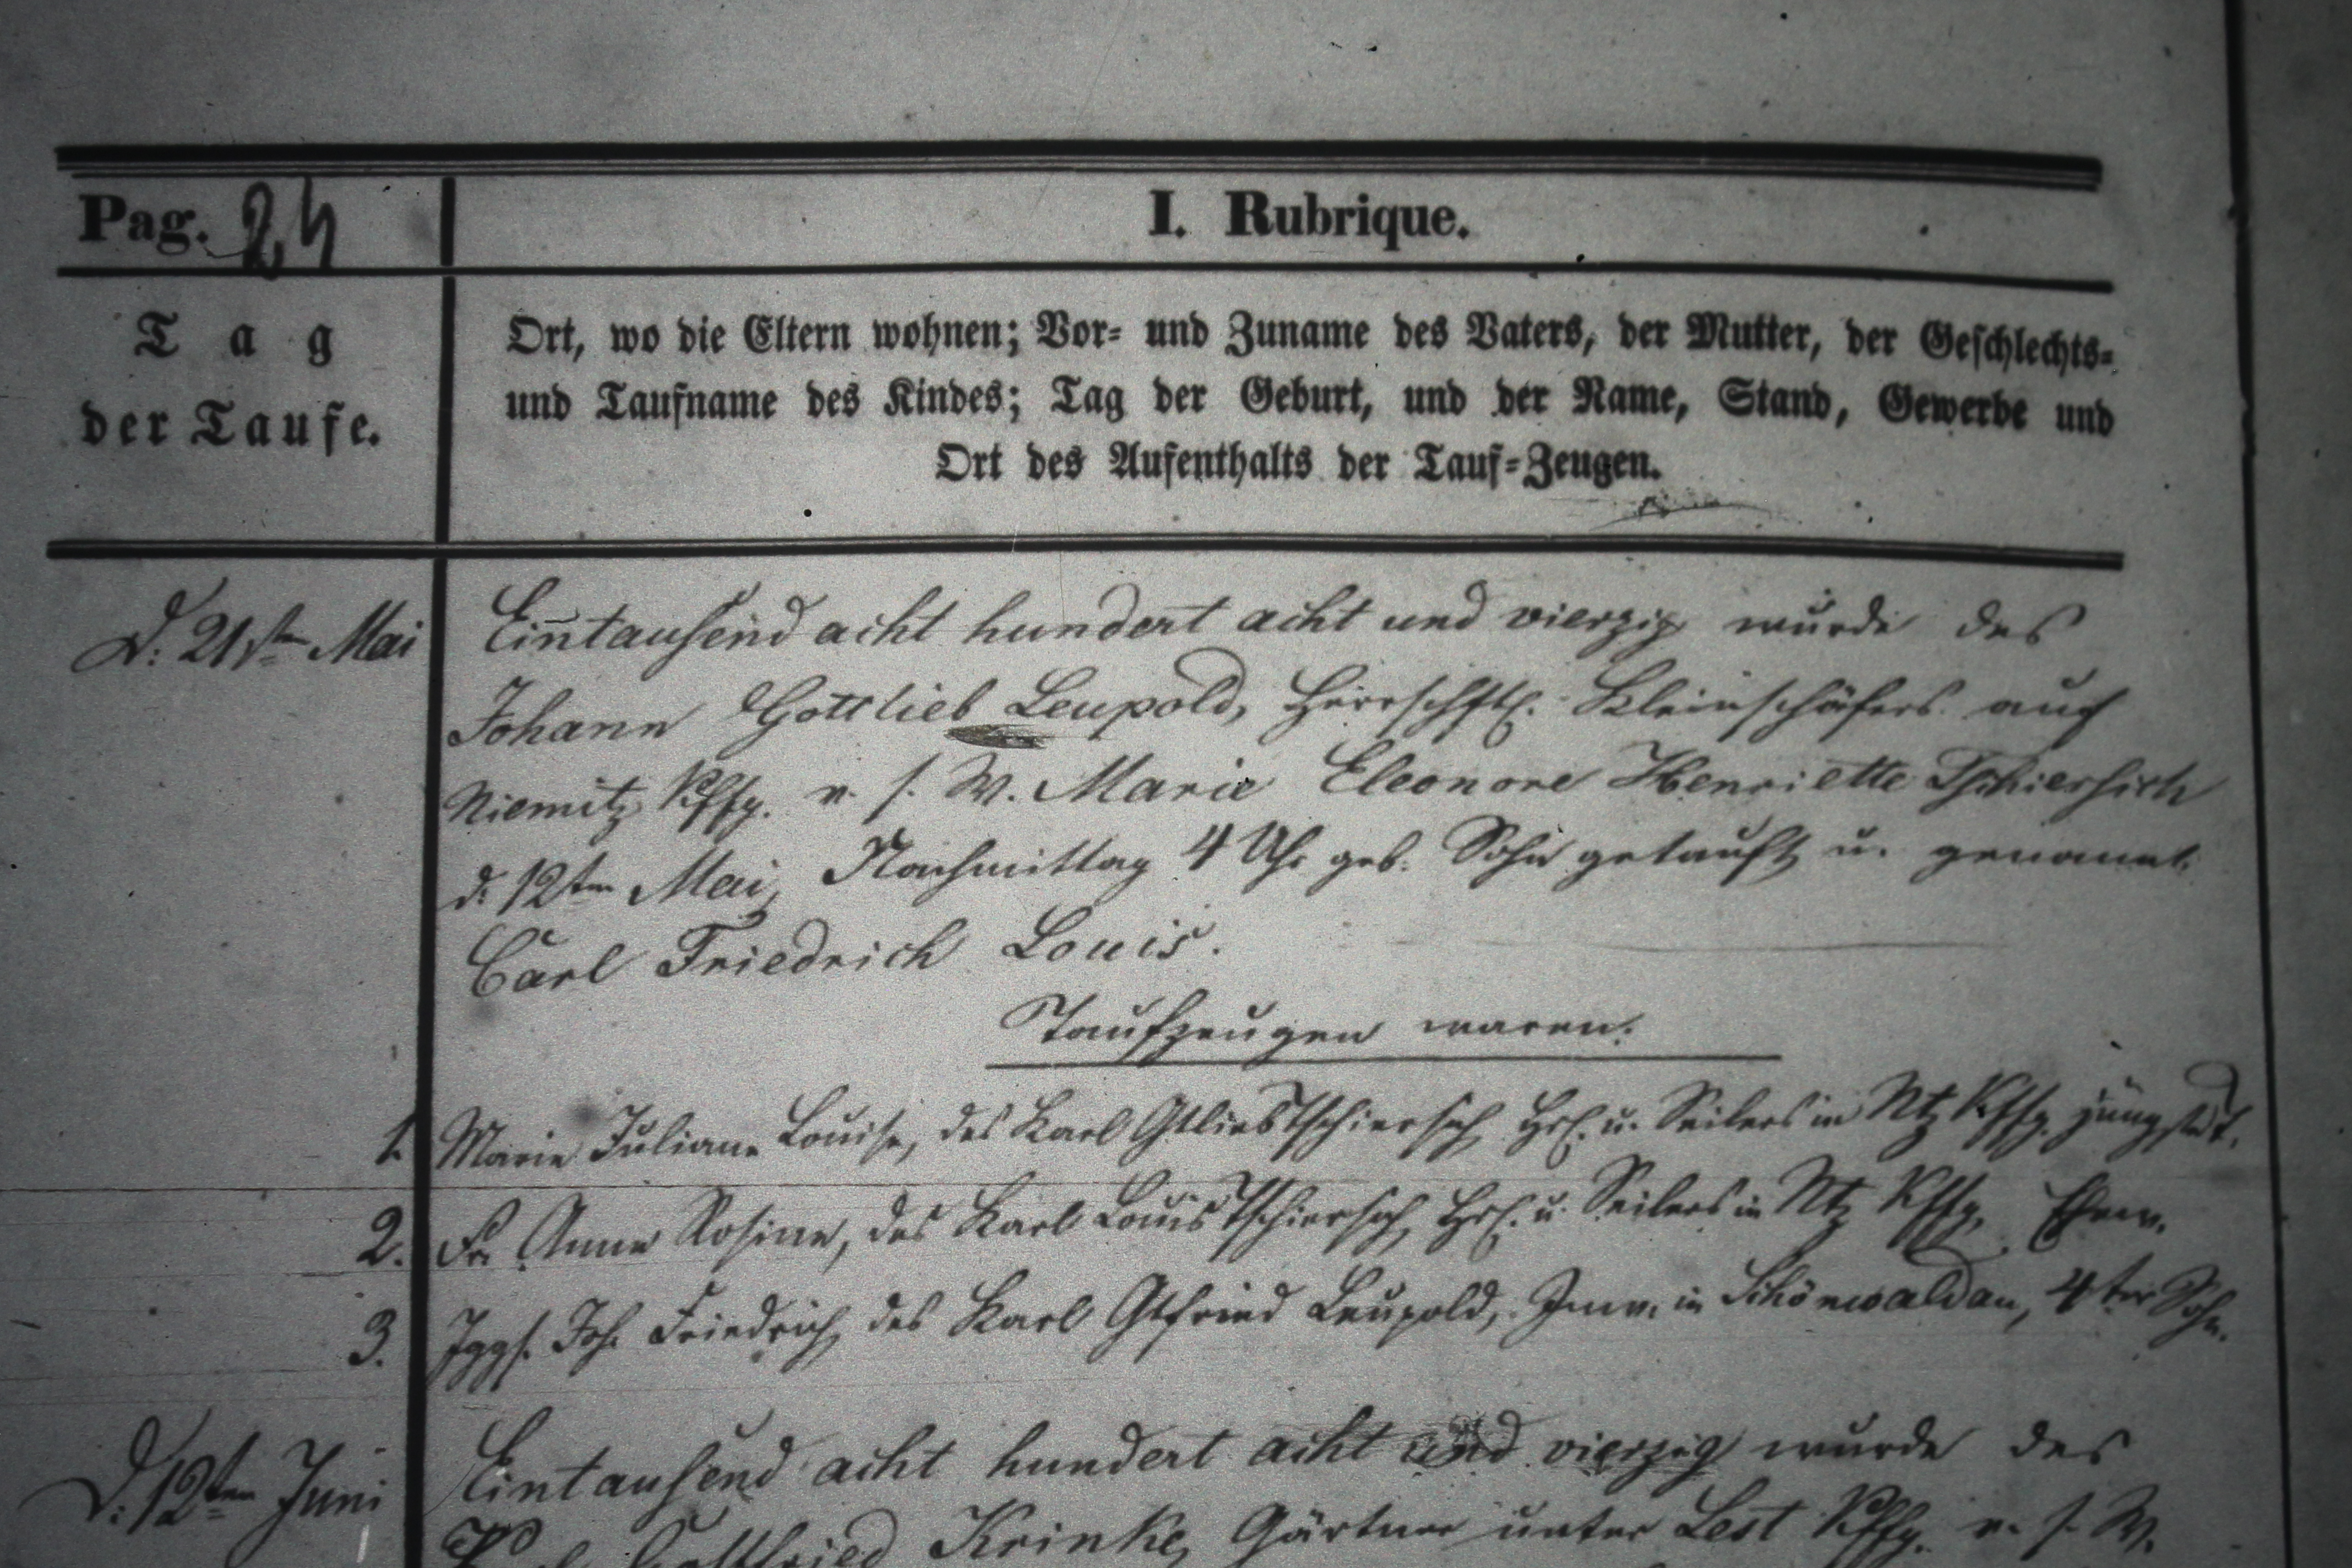 Pag. 24
I. Rubrique.
Tag
der Taufe.
Ort, wo die Eltern wohnen; Vor- und Zuname des Vaters, der Mutter, der Geschlechts-
und Taufname des Kindes; Tag der Geburt, und der Name, Stand, Gewerbe und
Ort des Aufenthalts der Tauf-Zeugen.
D. 21sten Mai
Eintausend acht hundert acht und vierzig wurde des
Johann Gottlieb Leupold, Herrschftl. Kleinschäfers auf
Niemitz Kffg. v. s. W. Marie Eleonore Henriette Tschiersich
d. 12ten Mai, Nachmittag 4 Uhr geb. Sohn getauft u. genannt:
Carl Friedrich Louis.
Taufzeugen waren:
1. Marie Juliane Louise, des Karl Gtlieb Tschiersich, u. Seilers in Ntz Kffg. jüngste T.
2. Fr. Anne Rosine, des Karl Louis Tschiersich, u. Seilers in Ntz Kffg. Ehew.
3. Jggs. Joh. Friedrich, des Karl Gtfried Leupold, Inw. in Schönwaldau, 4ter Sohn.
D. 12ten Juni
Eintausend acht hundert acht und vierzig wurde des
Gottfried Krinke, Gärtner unter Lest Kffg. v. s. W.